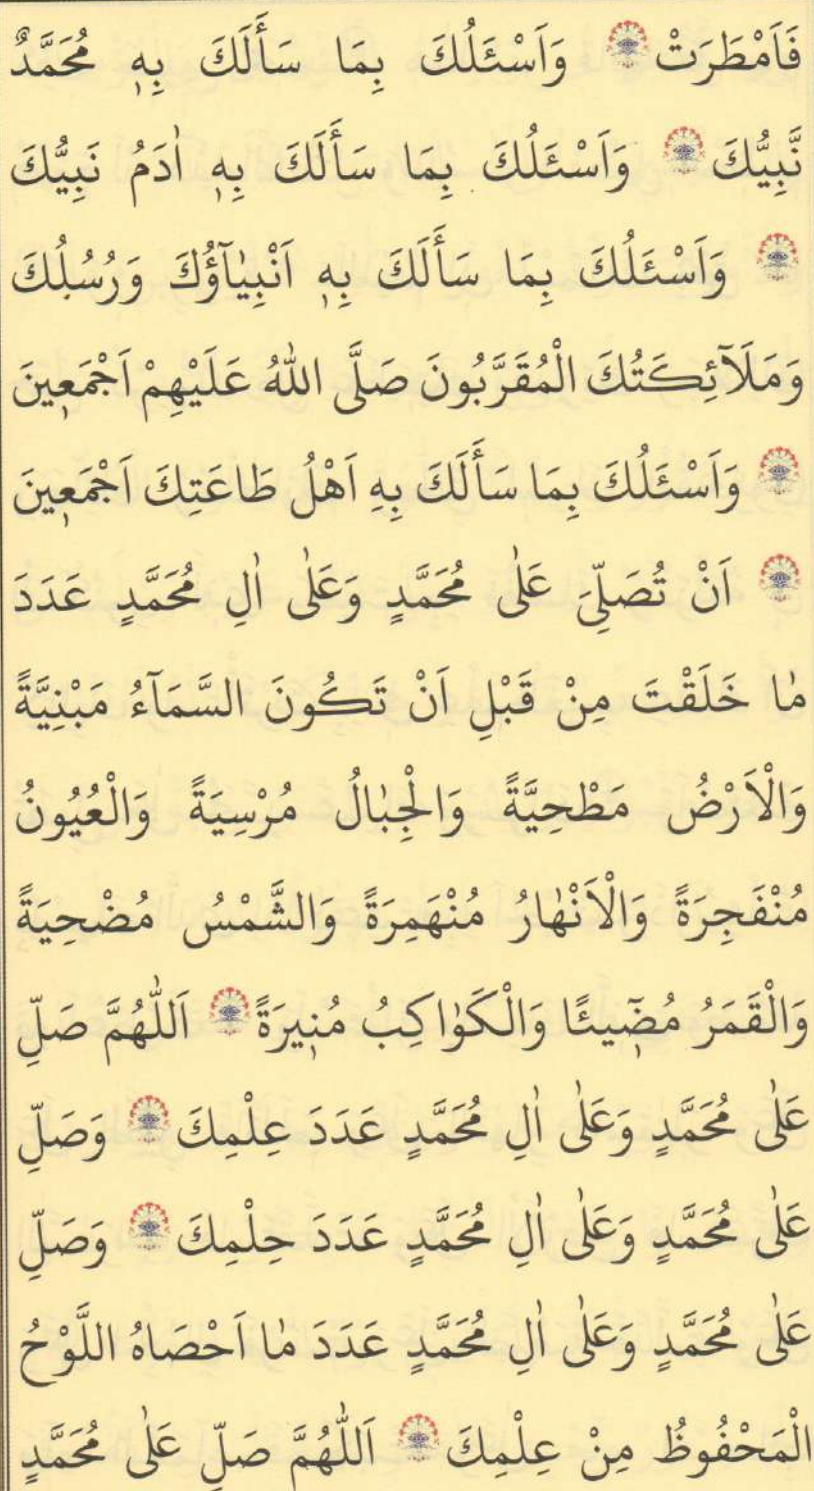 فَاَمْطَرَتْ وَاَسْئَلُكَ بِمَا سَأَلَكَ بِهٖ مُحَمَّدٌ
نَّبِيُّكَ وَاَسْئَلُكَ بِمَا سَأَلَكَ بِهٖ اٰدَمُ نَبِيُّكَ
وَاَسْئَلُكَ بِمَا سَأَلَكَ بِهٖ اَنْبِيَٰٓاؤُكَ وَرُسُلُكَ
وَمَلَآئِكَتُكَ الْمُقَرَّبُونَ صَلَّى اللّٰهُ عَلَيْهِمْ اَجْمَعٖينَ
وَاَسْئَلُكَ بِمَا سَأَلَكَ بِهِ اَهْلُ طَاعَتِكَ اَجْمَعٖينَ
اَنْ تُصَلِّيَ عَلٰى مُحَمَّدٍ وَعَلٰى اٰلِ مُحَمَّدٍ عَدَدَ
مٰا خَلَقْتَ مِنْ قَبْلِ اَنْ تَكُونَ السَّمَآءُ مَبْنِيَّةً
وَالْاَرْضُ مَطْحِيَّةً وَالْجِبٰالُ مُرْسِيَةً وَالْعُيُونُ
مُنْفَجِرَةً وَالْاَنْهٰارُ مُنْهَمِرَةً وَالشَّمْسُ مُضْحِيَةً
وَالْقَمَرُ مُضٖٓيئًا وَالْكَوٰاكِبُ مُنٖيرَةً اَللّٰهُمَّ صَلِّ
عَلٰى مُحَمَّدٍ وَعَلٰى اٰلِ مُحَمَّدٍ عَدَدَ عِلْمِكَ وَصَلِّ
عَلٰى مُحَمَّدٍ وَعَلٰى اٰلِ مُحَمَّدٍ عَدَدَ حِلْمِكَ وَصَلِّ
عَلٰى مُحَمَّدٍ وَعَلٰى اٰلِ مُحَمَّدٍ عَدَدَ مٰا اَحْصَاهُ اللَّوْحُ
الْمَحْفُوظُ مِنْ عِلْمِكَ اَللّٰهُمَّ صَلِّ عَلٰى مُحَمَّدٍ